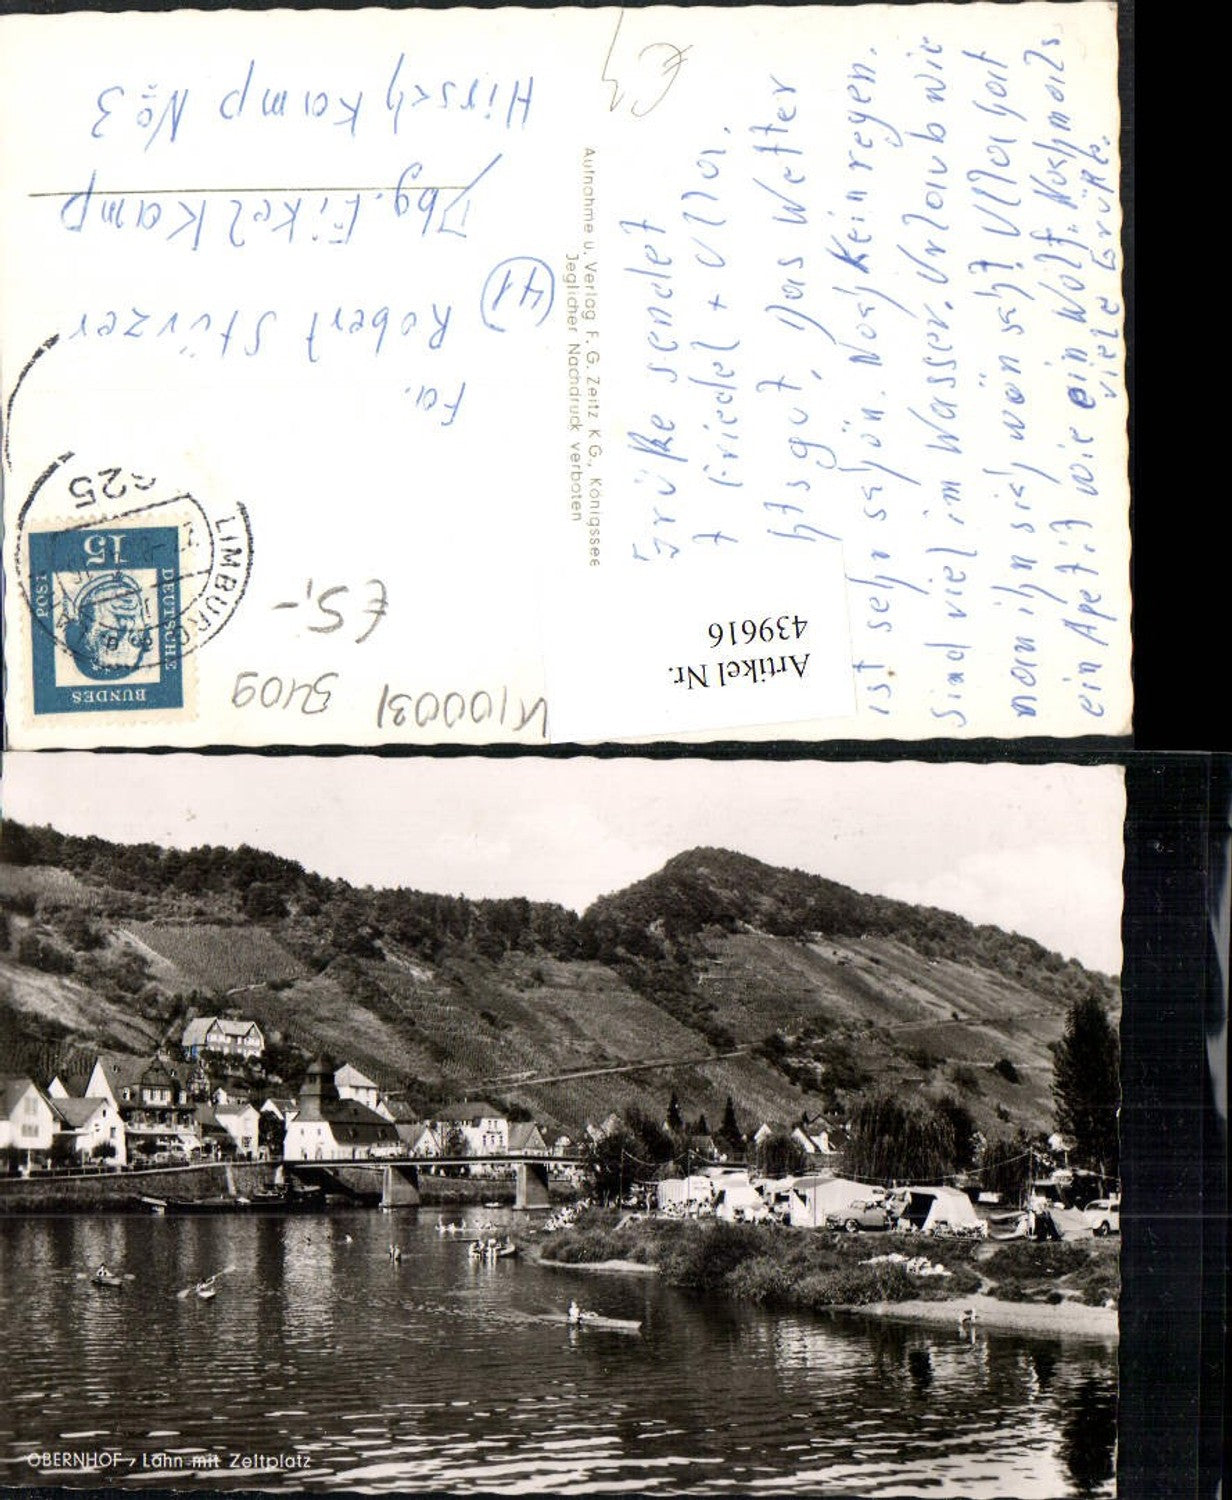 Fa.
Robert Stürzer
(41)
Dbg. Eikelkamp
Hirschkamp No 3
Aufnahme u. Verlag F. G. Zeitz K G., Königssee
Jeglicher Nachdruck verboten
Grüße sendet
Friedel + Ulla.
gut, Das Wetter
ist sehr schön. Noch kein regen.
Sind viel im Wasser. Urlaub wie
man ihn sich wünscht. Ulla hat
ein Apetit wie ein Wolf. Nochmals
viele Grüße.
Artikel Nr.
439616
€5,-
K100031 5409
DEUTSCHE
BUNDES
POST
15
LIMBURG
25
OBERNHOF / Lahn mit Zeltplatz